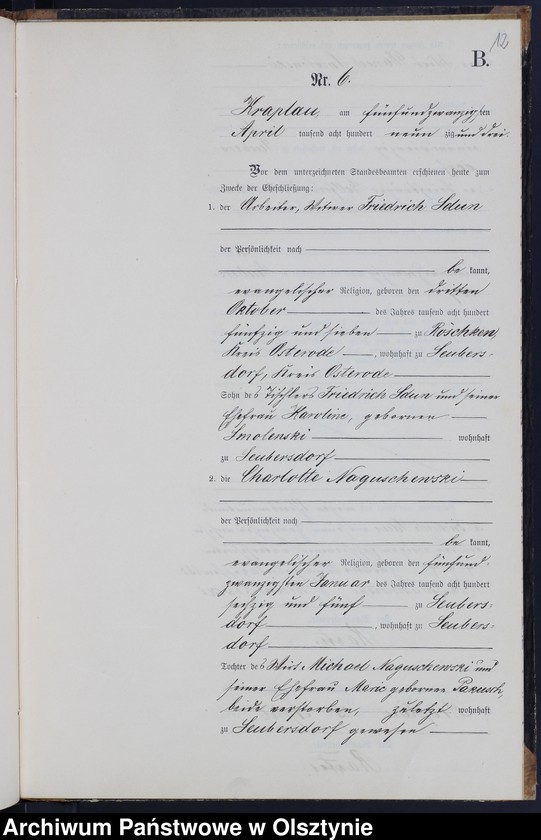 12
B.
Nr. 6.
Kraplau, am fünfundzwanzig ten
April tausend acht hundert neun zig und drei.
Vor dem unterzeichneten Standesbeamten erschienen heute zum
Zwecke der Eheschließung:
1. der Arbeiter, Witwer Friedrich Sdun
der Persönlichkeit nach
be kannt,
evangelischer Religion, geboren den dritten
Oktober des Jahres tausend acht hundert
fünfzig und sieben zu Röschken,
Kreis Osterode, wohnhaft zu Seubers-
dorf, Kreis Osterode
Sohn des Tischlers Friedrich Sdun und seiner
Ehefrau Karoline, geborenen
Smolenski wohnhaft
zu Seubersdorf
2. die Charlotte Naguschewski
der Persönlichkeit nach
be kannt,
evangelischer Religion, geboren den fünfund-
zwanzigsten Januar des Jahres tausend acht hundert
sechzig und fünf zu Seubers-
dorf, wohnhaft zu Seubers-
dorf
Tochter des Wirts Michael Naguschewski und
seiner Ehefrau Marie geborenen
beide verstorben, zuletzt wohnhaft
zu Seubersdorf gewesen
Archiwum Państwowe w Olsztynie